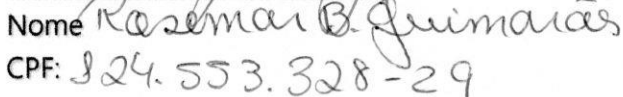 Nome Rosemar B. Guimarães
CPF: 124.553.328-29